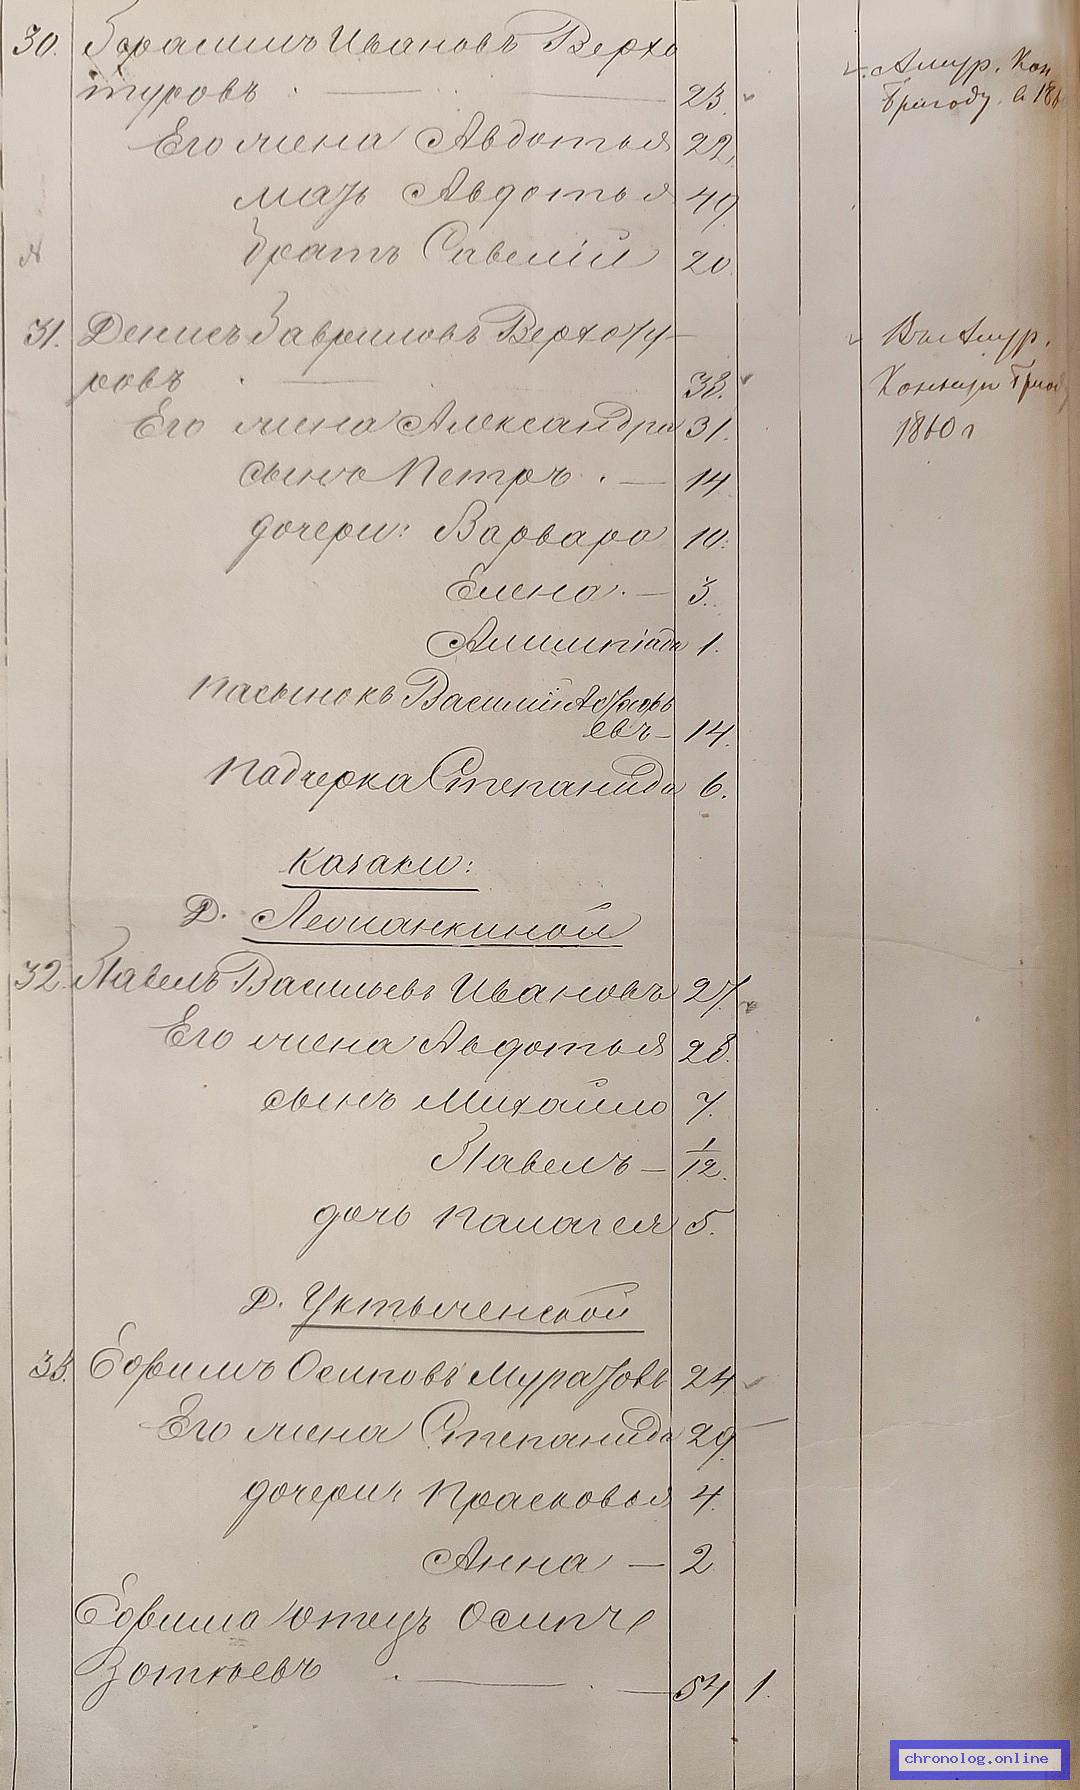 30. Герасимъ Ивановъ Верхо
туровъ 23.
Амур. Кон
Бригаду. в 186
Его жена Авдотья 22.
мать Авдотья 49
братъ Савелій 20.
31. Денисъ Гавриловъ Верхоту-
ровъ 38.
Въ Амур.
Конную Бригад
1860 г
Его жена Александра 31.
сынъ Петръ. — 14
дочери: Варвара 10.
Елена. — 3.
Алимпіада 1.
пасынокъ Василій
евъ — 14.
падчерка Степанида 6.
Казаки:
Д.
32. Павелъ Васильевъ Ивановъ 27.
Его жена Авдотья 28.
сынъ Михайло 7.
Павелъ — 1/12.
дочь Палагея 5.
Д. Уктыченской
33. Ефимъ Осиповъ Муратовъ 24
Его жена Степанида 29.
дочери: Прасковья 4.
Анна — 2
Ефима отецъ Осипъ
54 1.
chronolog.online